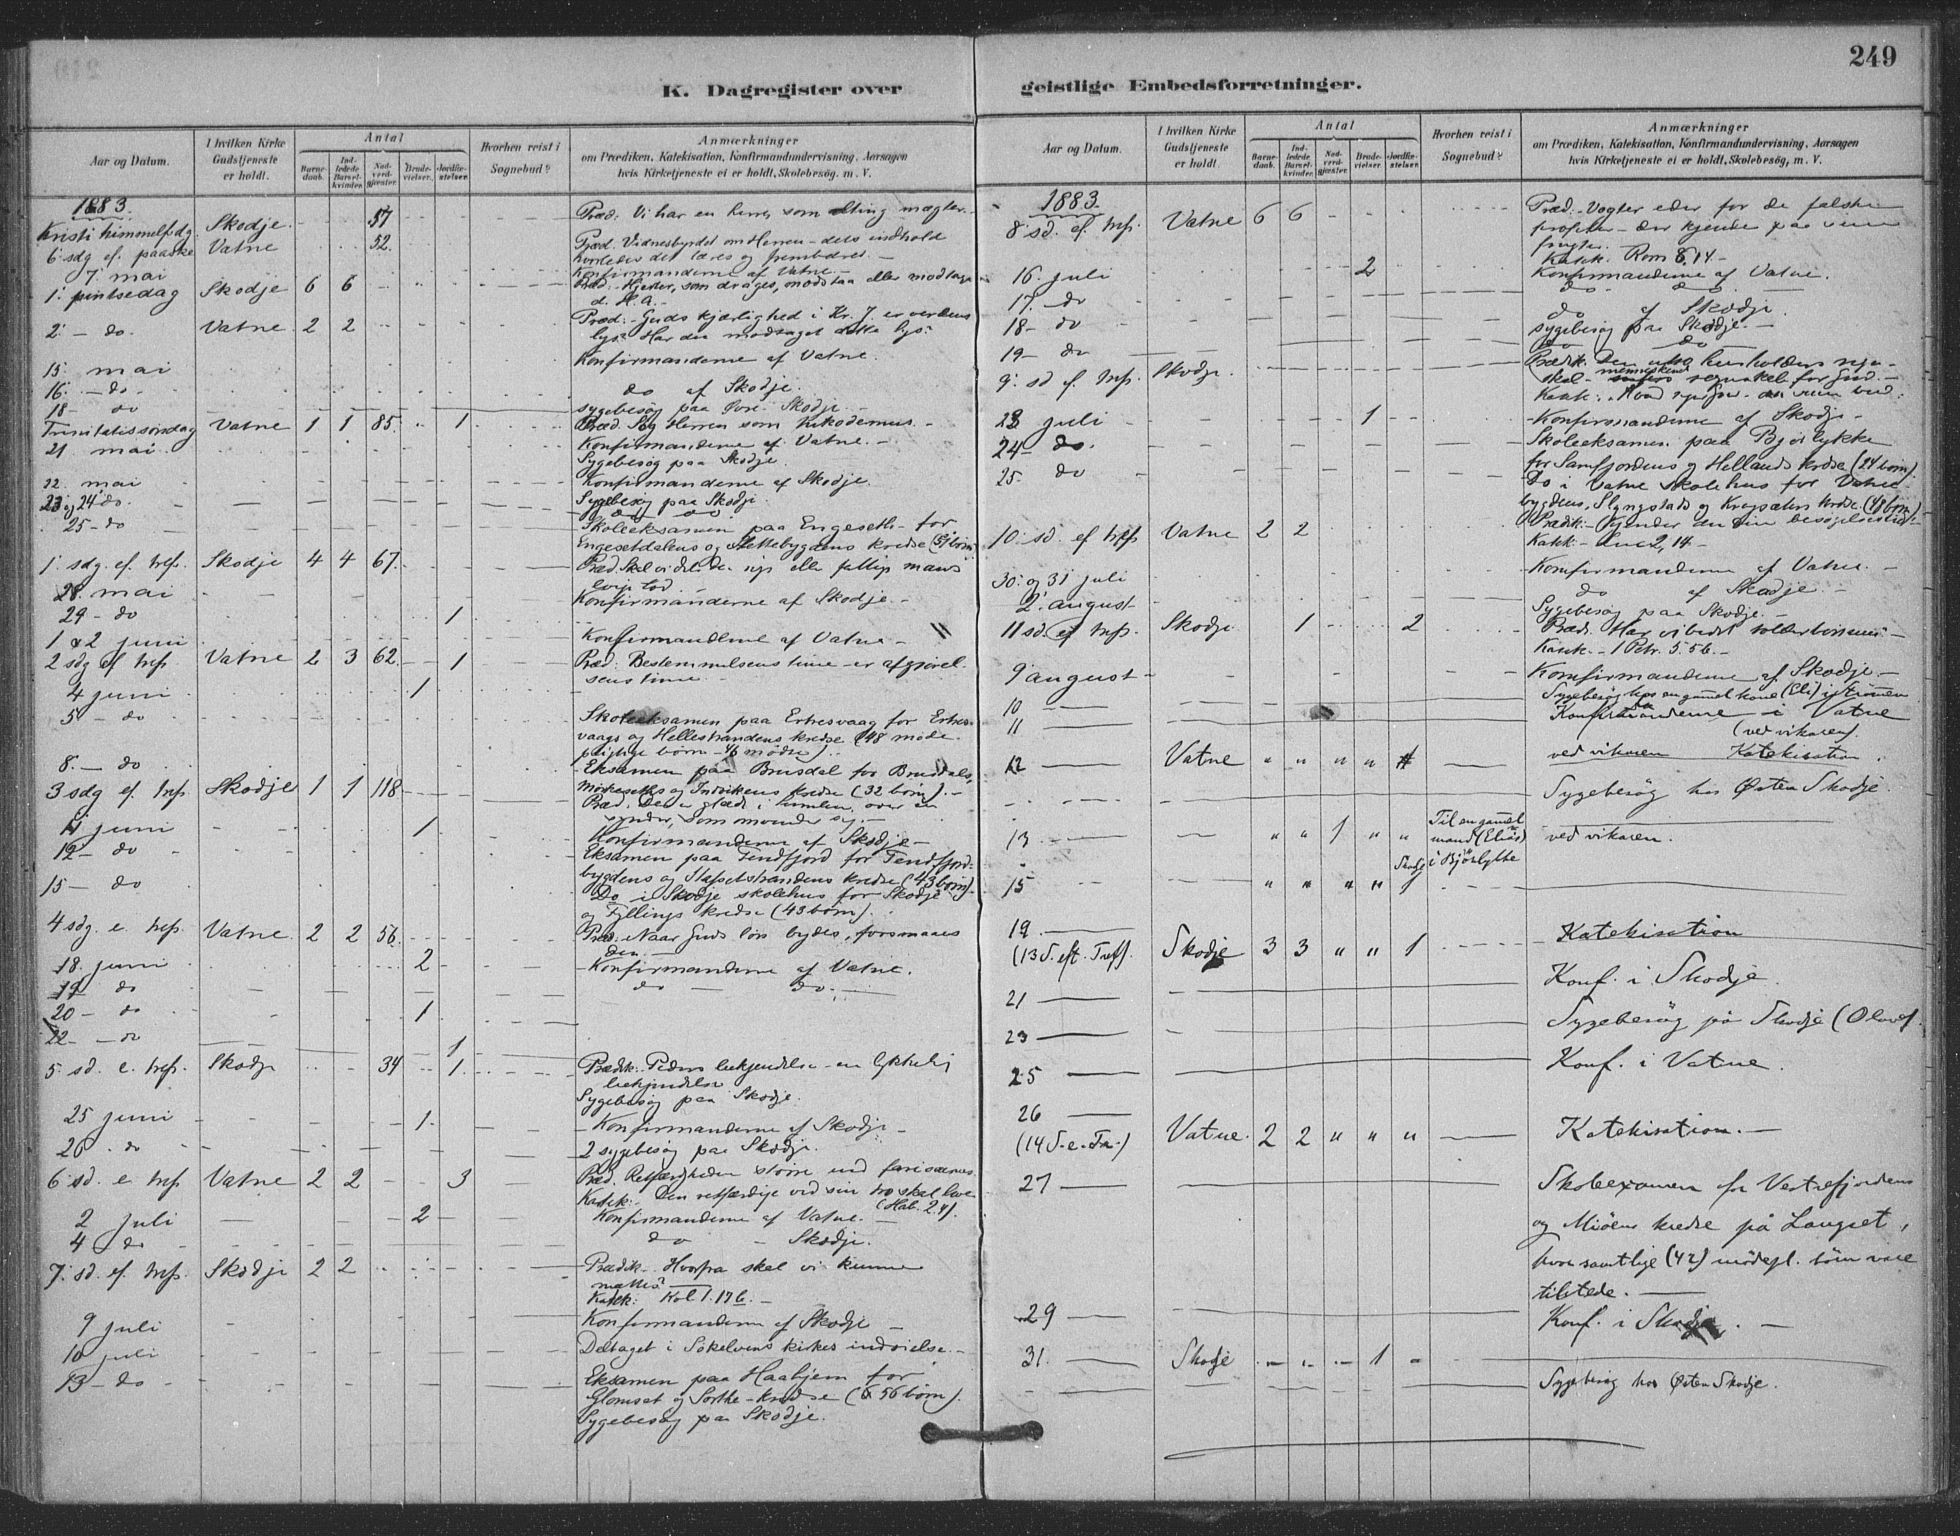 249
K. Dagregister over
Aar og Datum.
I hvilken Kirke Gudstjeneste er holdt.
Antal
Barne-daab.
Ind-ledede Barsel-kvinder.
Nad-verd-gjester.
Brude-vielser.
Jordfæ-stelser.
Hvorhen reist i Sognebud?
Anmærkninger
om Prædiken, Katekisation, Konfirmandundervisning, Aarsagen
hvis Kirketjeneste ei er holdt, Skolebesøg, m. V.
1883.
Kristi himmelf.dg. Skodje 57 Præd: Vi har en herre som alting mægter.
6 sdg ef. paaske Vatne 52. Præd: Vidnesbyrdet om Herren - dets indhold
hvorledes det læres og frembæres.
7. mai Konfirmanderne af Vatne.
1. pintsedag Skodje 6 6 Præd: Hjerter, som drages, modstaa eller modtage
d. H. A.
2. - do. Vatne 2 2 Præd: Guds kjærlighed i Kr. J. er verdens
lys. Har du modtaget dette lys?
15 mai Konfirmanderne af Vatne.
16. - do. do af Skodje.
18 - do sygebesøg paa Øvre Skodje.
Trinitatissøndag Vatne 1 1 85. 1 Præd. Søg Herren som Nikodemus.
21 mai Konfirmanderne af Vatne.
Sygebesøg paa Skodje.
22. mai Konfirmanderne af Skodje.
23 og 24 do Sygebesøg paa Skodje.
do do
25 - do Skoleeksamen paa Engeseth for
Engesetdalens og Slettebygdens kredse
1. sdg. ef. tref. Skodje 4 4 67.
28. mai Konfirmanderne af Skodje.
29 - do 1
1 & 2 juni Konfirmanderne af Vatne
2 sdg ef tref Vatne 2 3 62. 1 Præd: Bestemmelsens time er afgjørel-
sens time.
4 juni 1
5 - do Skoleeksamen paa Erkesvaag for Erkes-
vaags og Hellestrandens kredse (48 møde
pligtige børn - 46 mødte).
8. - do Eksamen paa Brusdal for Brusdals,
Mørkeseths og Indvikens kredse (32 børn).
3 sdg ef. tref Skodje 1 1 118 Præd: Der er glæde i himlen over en
synder, som omvender sig.
11 juni 1
12 - do Konfirmanderne af Skodje
Eksamen paa Tendfjord for Tendfjord-
bygdens og Stafsetstrandens kredse (43 børn).
15 - do Do i Skodje skolehus for Skodje
og Fyllings kredse (43 børn).
4 sdg. e. tref. Vatne 2 2 56. Præd: Naar Guds bydes, forsmaaes
den.
18. juni 2 Konfirmanderne af Vatne.
19 do do do
20 - do 1
22 - do 1
5. sd. e. tref. Skodje 34 1 Prædik: Peders bekjendelse - en
bekjendelse
Sygebesøg paa Skodje.
25 juni 1. Konfirmanderne af Skodje
26 . do 2 sygebesøg paa Skodje.
6 sd. e tref Vatne 2 2 3 Præd. Retfærdigheden større end farisæernes
Katek: Den retfærdige ved sin tro skal leve
(Hab. 2.4).
2 juli 2 Konfirmanderne af Vatne.
4 do do - Skodje.
7. sd. ef. tref. Skodje 2 2 Prædik. Hvorfra skal vi kunne
mættes?
Katek: Kol 1.
9 juli Konfirmanderne af Skodje
10 juli Deltaget i Søkelvens kirkes indvielse.
13 - do Eksamen paa Haahjem for
Glomset og Sorthe-kredse (56 børn).
Sygebesøg paa Skodje.
geistlige Embedsforretninger.
Aar og Datum.
I hvilken Kirke Gudstjeneste er holdt.
Antal
Barne-daab.
Ind-ledede Barsel-kvinder.
Nad-verd-gjester.
Brude-vielser.
Jordfæ-stelser.
Hvorhen reist i Sognebud?
Anmærkninger
om Prædiken, Katekisation, Konfirmandundervisning, Aarsagen
hvis Kirketjeneste ei er holdt, Skolebesøg, m. V.
1883.
8. sd. ef. tref. Vatne 6 6 Præd: Vogter eder for de falske
profeter - der kjendes paa sine
frugter.
Katek. Rom 8.14 -
16. juli 2 Konfirmanderne af Vatne.
17. do do do
18 - do do af Skodje.
sygebesøg paa Skodje.
19 - do do do
9. sd ef. tref. Skodje. Prædik. husholders regn-
skab menneskenes regnskab for Gud.
23 juli 1 Konfirmanderne af Skodje
24 - do. Skoleeksamen paa Bjørlykke
for Samfjordens og Hellands kredse (24 børn)
25. do Do i Vatne skolehus for Vatne-
bygdens, Slyngstads og kredse (48 børn)
10. sd. ef tref Vatne 2 2 Prædik: Kjender du din besøgelsestid?
Katek - Luc 2, 14 -
30. og 31 juli Konfirmanderne af Vatne.
2. august do af Skodje.
Sygebesøg paa Skodje
11 sd. ef tref. Skodje 1 2
Katek. - 1 Petr. 5. 5 6. -
9 august Konfirmanderne af Skodje
10 Sygebesøg hos en gammel kone
11 Konfirmanderne i Vatne
(ved vikaren).
12 Vatne " " " " ved vikaren Katekisation.
Sygebesøg hos Østen Skodje.
13 " " 1 " " Til en gammel mand (Elias) i Bjørlykke ved vikaren.
15 " " " " Skodje 1
19.
(13 S. eft. Tref.) Skodje 3 3 " " 1 Katekisation
21 Konf. i Skodje.
23 Sygebesøg på Skodje
25 Konf. i Vatne.
26
(14 S. e. Tr.) Vatne. 2 2 " " " Katekisation.
27 Skoleexamen for Vestrefjordens
og Miøens kredse på Langset,
hvor samtlige (42) mødepl. børn vare
tilstede.
29 Konf. i Skodje.
31. Skodje 1
Sygebesøg hos Østen Skodje.